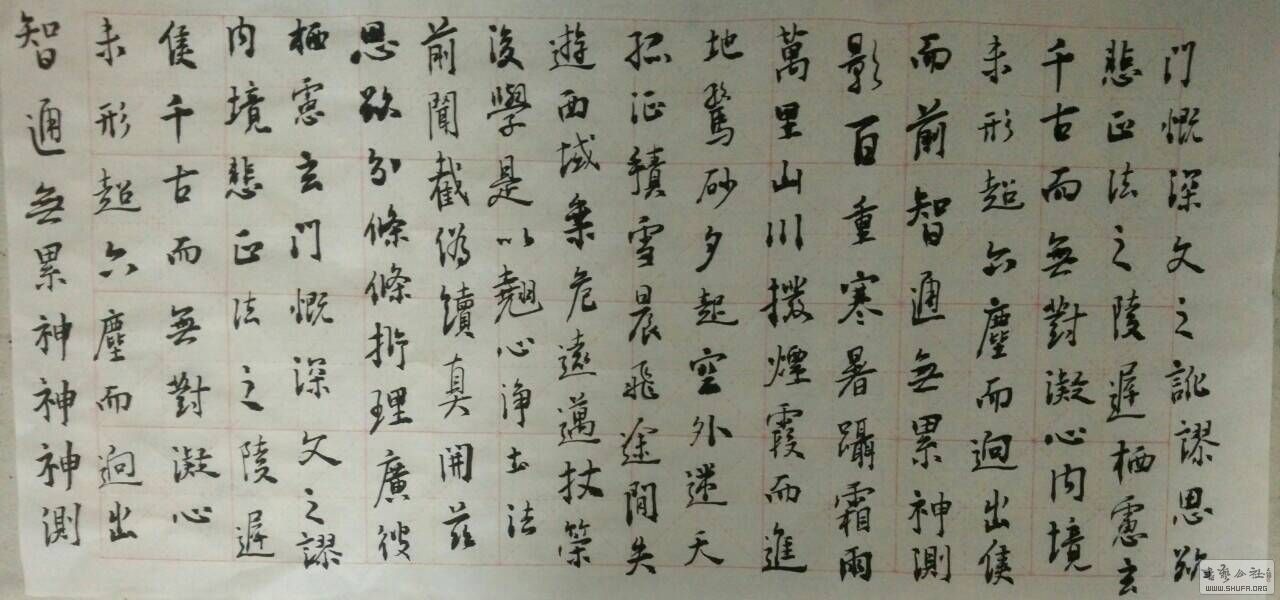 智通無累神神神測
未形超六塵而迥出
侯千古而無對凝心
内境悲正法之陵遲
栖慮玄門慨深文之謬
思欲分條條析理廣彼
前聞截偽續真開茲
後學是以翹心淨土法
遊西域乘危遠邁杖策
孤征積雪晨飛途間失
地驚砂夕起空外迷天
萬里山川撥煙霞而進
影百重寒暑躡霜雨
而前智通無累神測
未形超六塵而迥出侯
千古而無對凝心内境
悲正法之陵遲栖慮玄
門慨深文之訛謬思欲
WWW.SHUFA.ORG